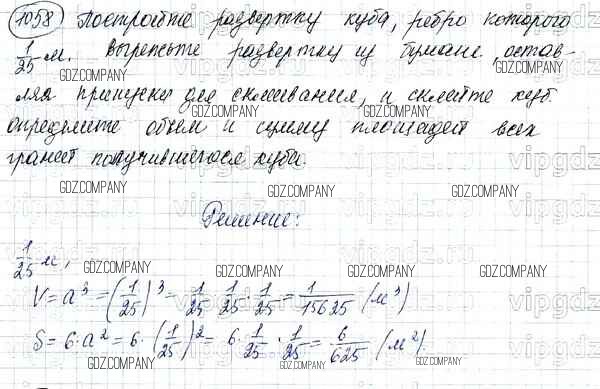 1058) Постройте развертку куба, ребро которого
1/25 м. Вырежьте развертку из бумаги, остав-
ляя припуски для склеивания, и склейте куб.
Определите объем и сумму площадей всех
граней получившегося куба.
Решение:
1/25 м,
V = a³ = (1/25)³ = 1/25 · 1/25 · 1/25 = 1/15625 (м³)
S = 6·a² = 6·(1/25)² = 6 · 1/25 · 1/25 = 6/625 (м²).
GDZ.COMPANY
vipgdz.ru